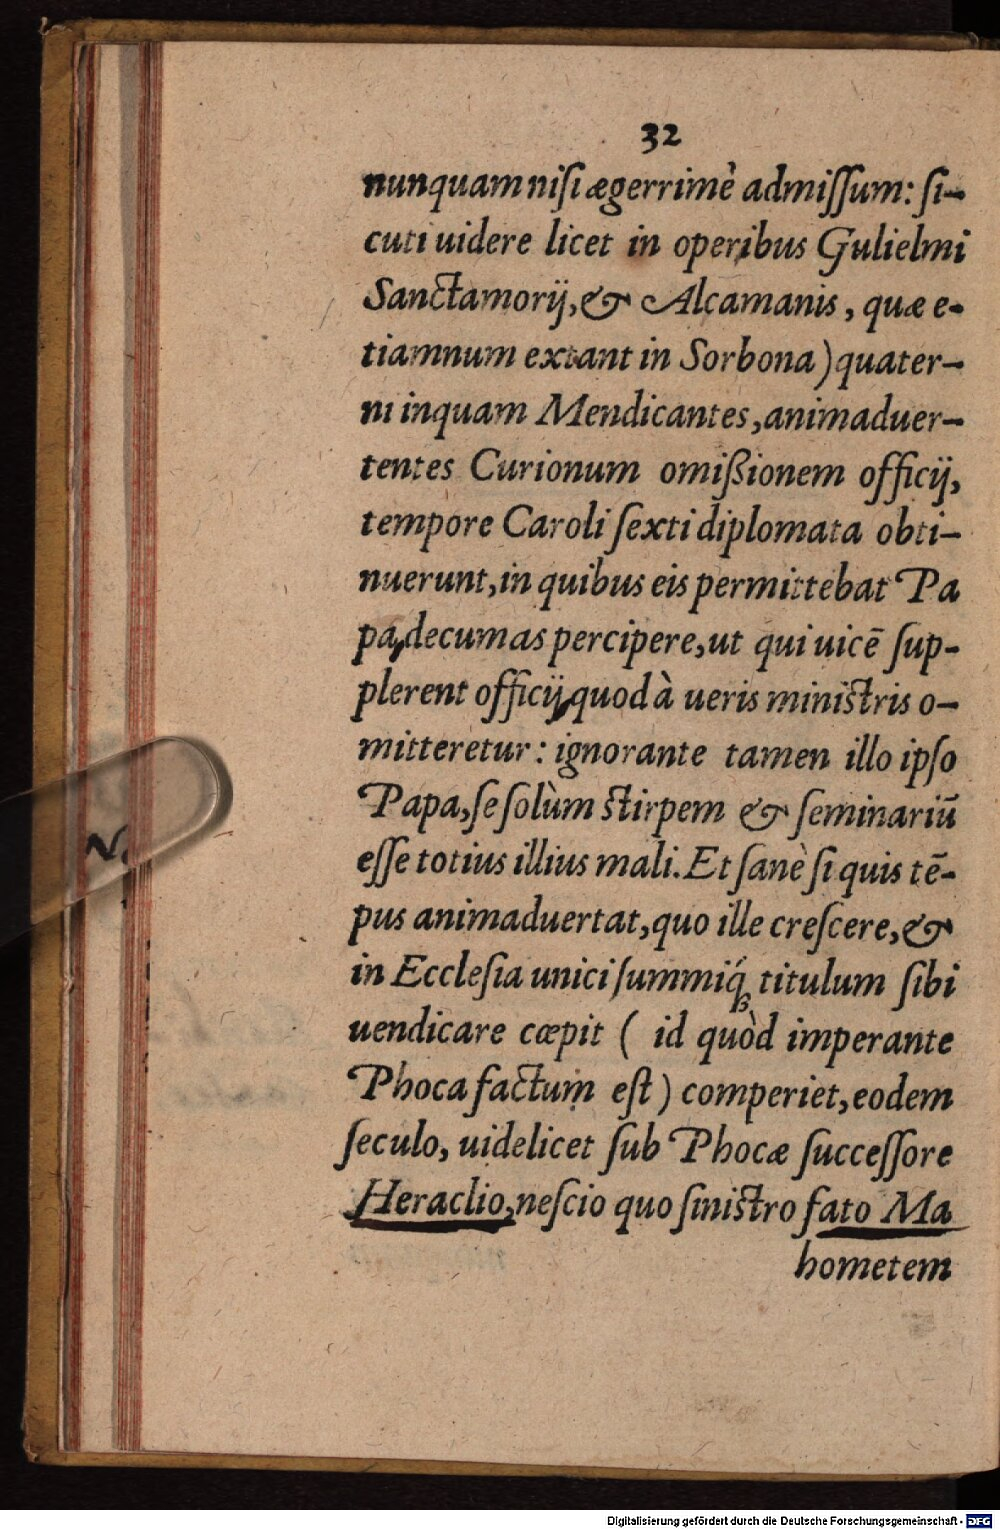 32
nunquam niſi ægerrimè admiſſum: ſi-
cuti uidere licet in operibus Gulielmi
Sanctamorij, & Alcamanis, quæ e-
tiamnum extant in Sorbona) quater-
ni inquam Mendicantes, animaduer-
tentes Curionum omißionem officij,
tempore Caroli ſexti diplomata obti-
nuerunt, in quibus eis permittebat Pa
pa, decumas percipere, ut qui uicē ſup-
plerent officij, quod à ueris miniſtris o-
mitteretur: ignorante tamen illo ipſo
Papa, ſe ſolùm ſtirpem & ſeminariū
eſſe totius illius mali. Et ſanè ſi quis tē-
pus animaduertat, quo ille creſcere, &
in Eccleſia unici ſummiq́; titulum ſibi
uendicare cœpit ( id quòd imperante
Phoca factum eſt ) comperiet, eodem
ſeculo, uidelicet ſub Phocæ ſucceſſore
Heraclio, neſcio quo ſiniſtro fato Ma
hometem
N.
Digitalisierung gefördert durch die Deutsche Forschungsgemeinschaft - DFG